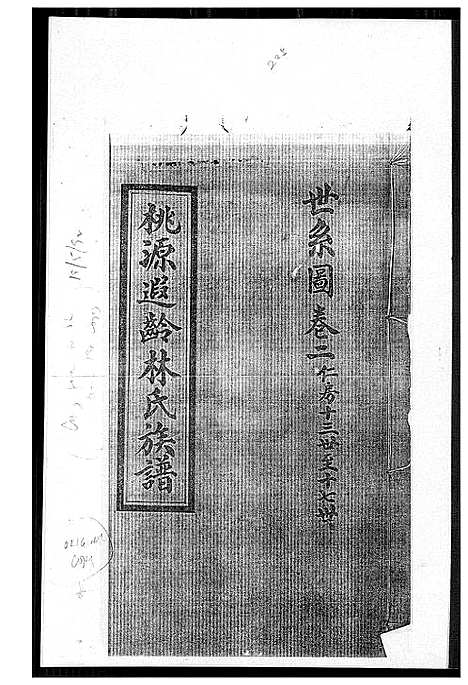 世系圖卷二仁房十三世至十七世
桃源遐齡林氏族譜